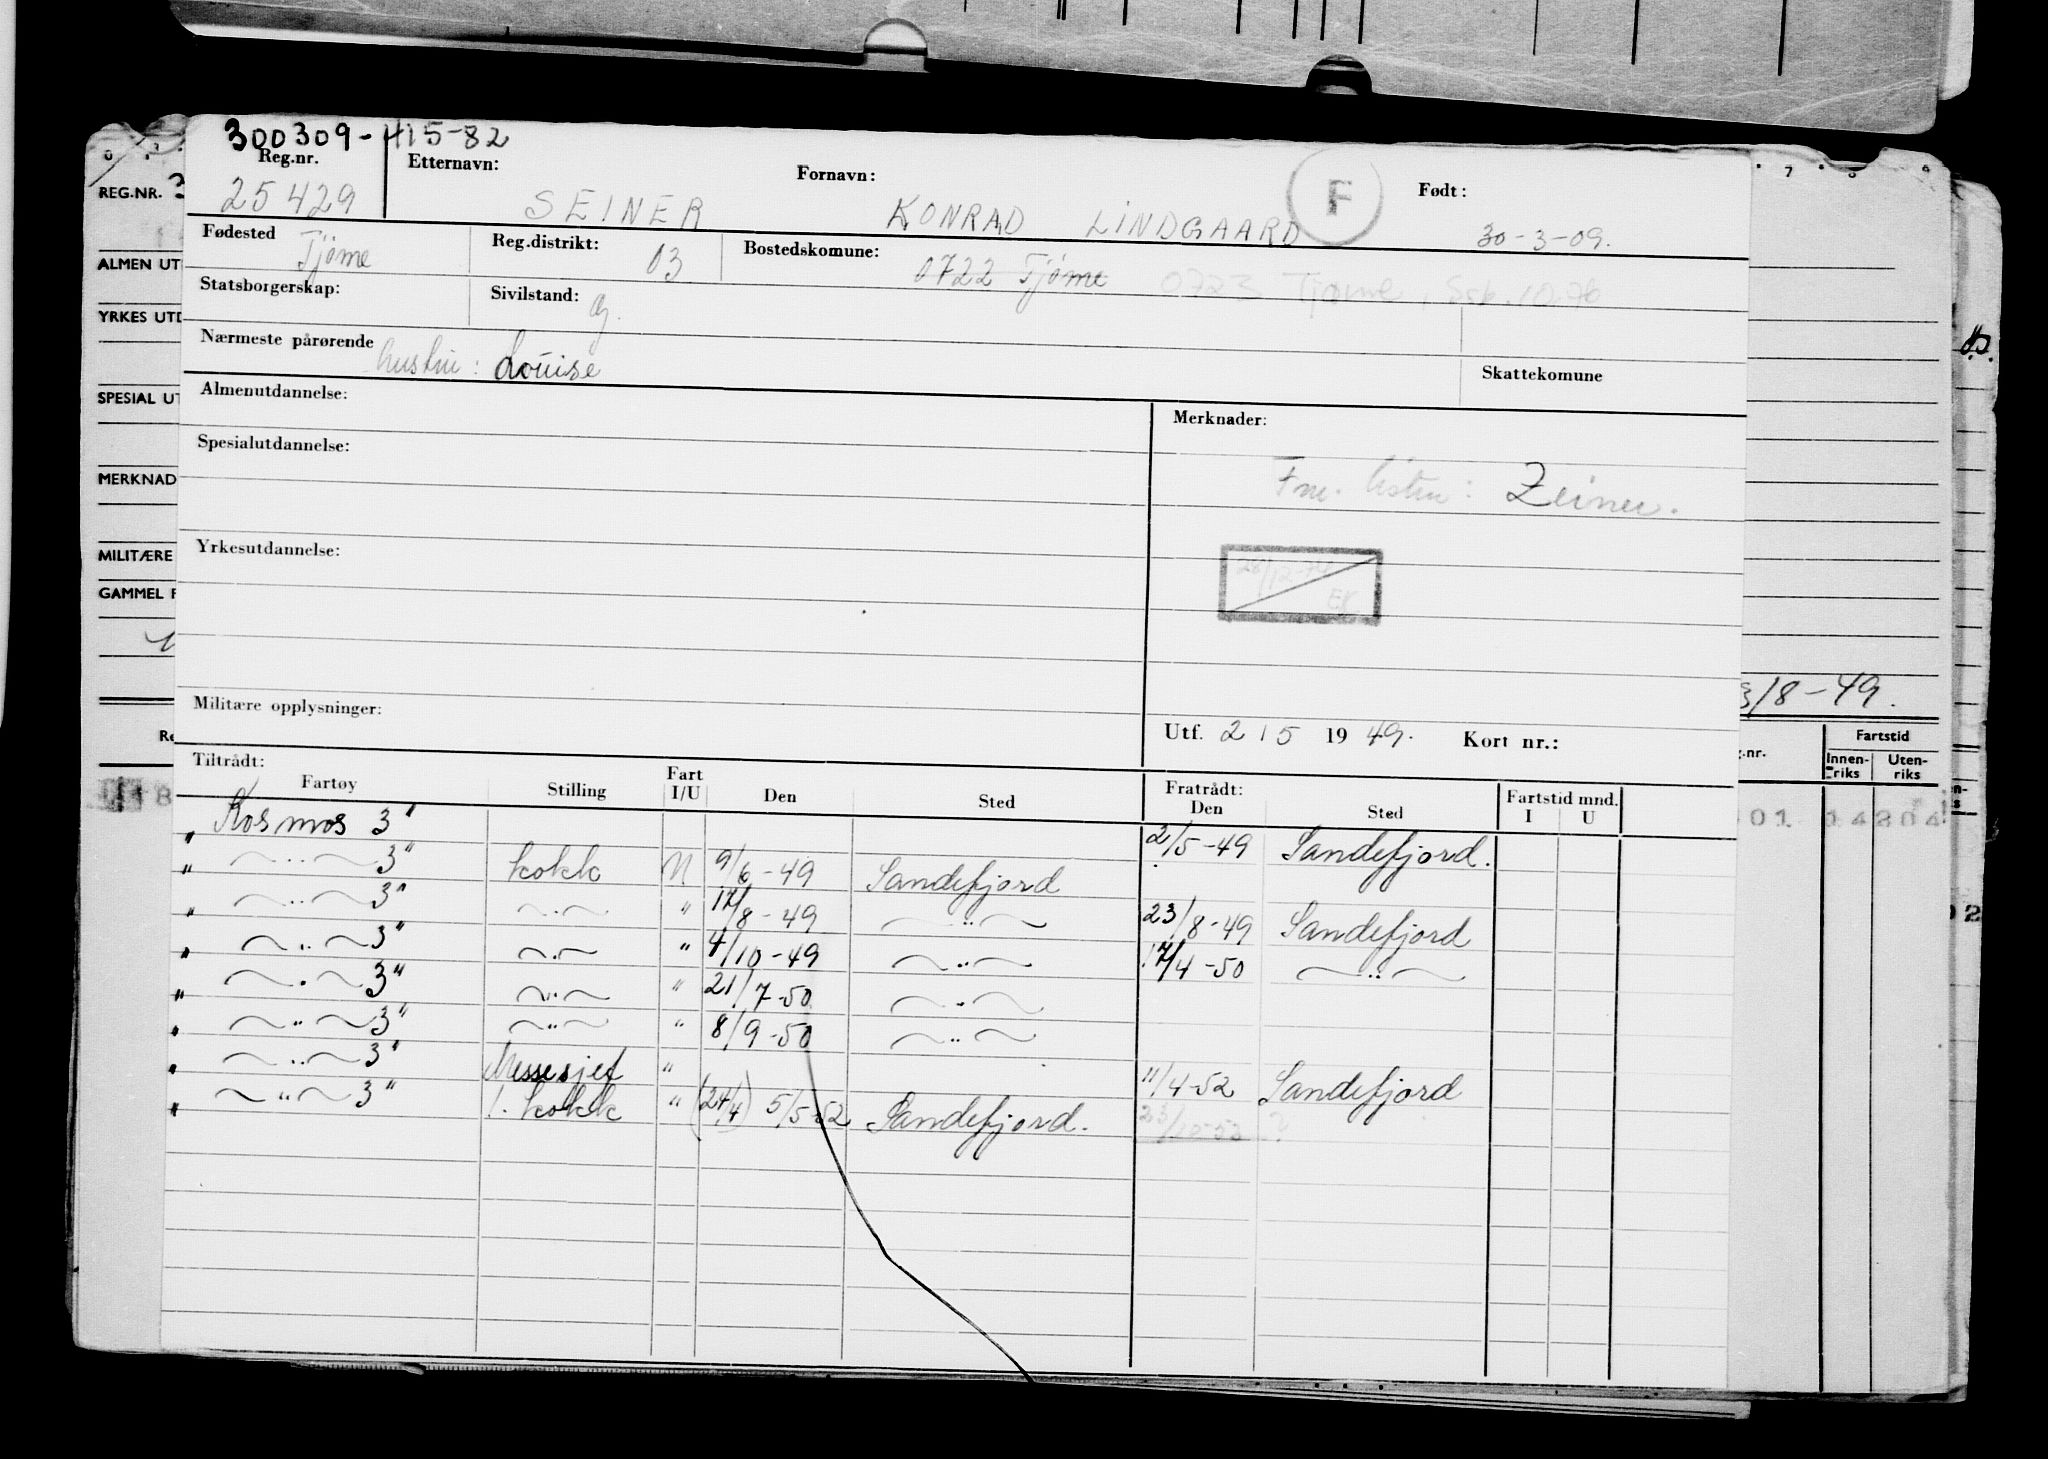 300309-415-82
Reg.nr. Etternavn: Fornavn: F Født:
25429 SEINER KONRAD LINDGAARD 30-3-09.
Fødested Tjøme Reg.distrikt: 03 Bostedskomune: 0722 Tjøme 0723 Tjøme,
Statsborgerskap: Sivilstand: g.
Nærmeste pårørende hustru: Louise
Skattekomune
Almenutdannelse: Merknader:
Spesialutdannelse:
listen: Zeiner.
Yrkesutdannelse:
Militære opplysninger:
Utf. 2 / 5 19 49. Kort nr.:
Tiltrådt: Fratrådt:
Fartøy Stilling Fart I/U Den Sted Den Sted Fartstid mnd. I U
" Kosmos 3" 2/5-49 Sandefjord.
" —"— 3" kokk U 9/6-49 Sandefjord
" —"— 3" —"— " 17/8-49 —"— 23/8-49 Sandefjord
" —"— 3" —"— " 4/10-49 —"— 17/4-50 —"—
" —"— 3" —"— " 21/7-50 —"—
" —"— 3" —"— " 8/9-50 —"—
" —"— 3" Messesjef " 11/4-52 Sandefjord
" —"— 3" 1. kokk " (24/4) 5/5-52 Sandefjord. ?
REG.NR. 3
ALMEN UT
YRKES UTD
SPESIAL UT
MERKNAD
MILITÆRE
GAMMEL F
Re
7 8 9
3/8-49.
g.nr. Fartstid
Innen-riks Uten-riks
01 14804
02